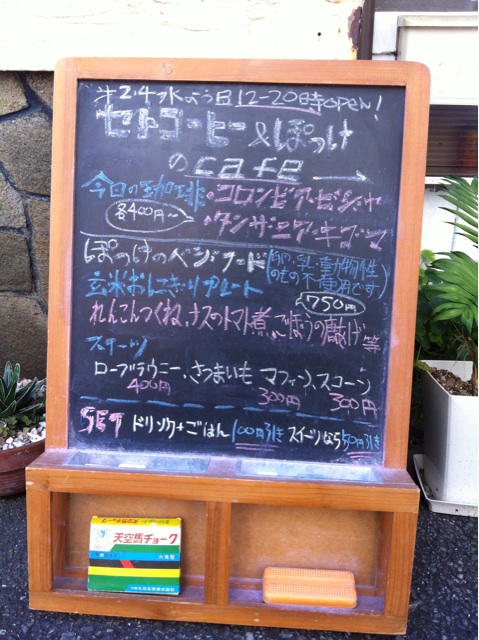 第2.4水のう日12-20時open!
セトコーヒー&ぽっけ
のcafe →
今日の珈琲・コロンビア・ピジャ
各400円〜
・タンザニア・キゴマ
ぽっけのベジフード(卵、乳、動物性のもの不使用です)
玄米おにぎりプレート 750円
れんこんつくね、ナスのトマト煮、ごぼうの唐揚げ 等
スイーツ
ローブラウニー、さつまいも マフィン、スコーン
400円 300円 300円
SET ドリンク+ごはん 100円引き スイーツなら50円引き
天空馬チョーク
六角型